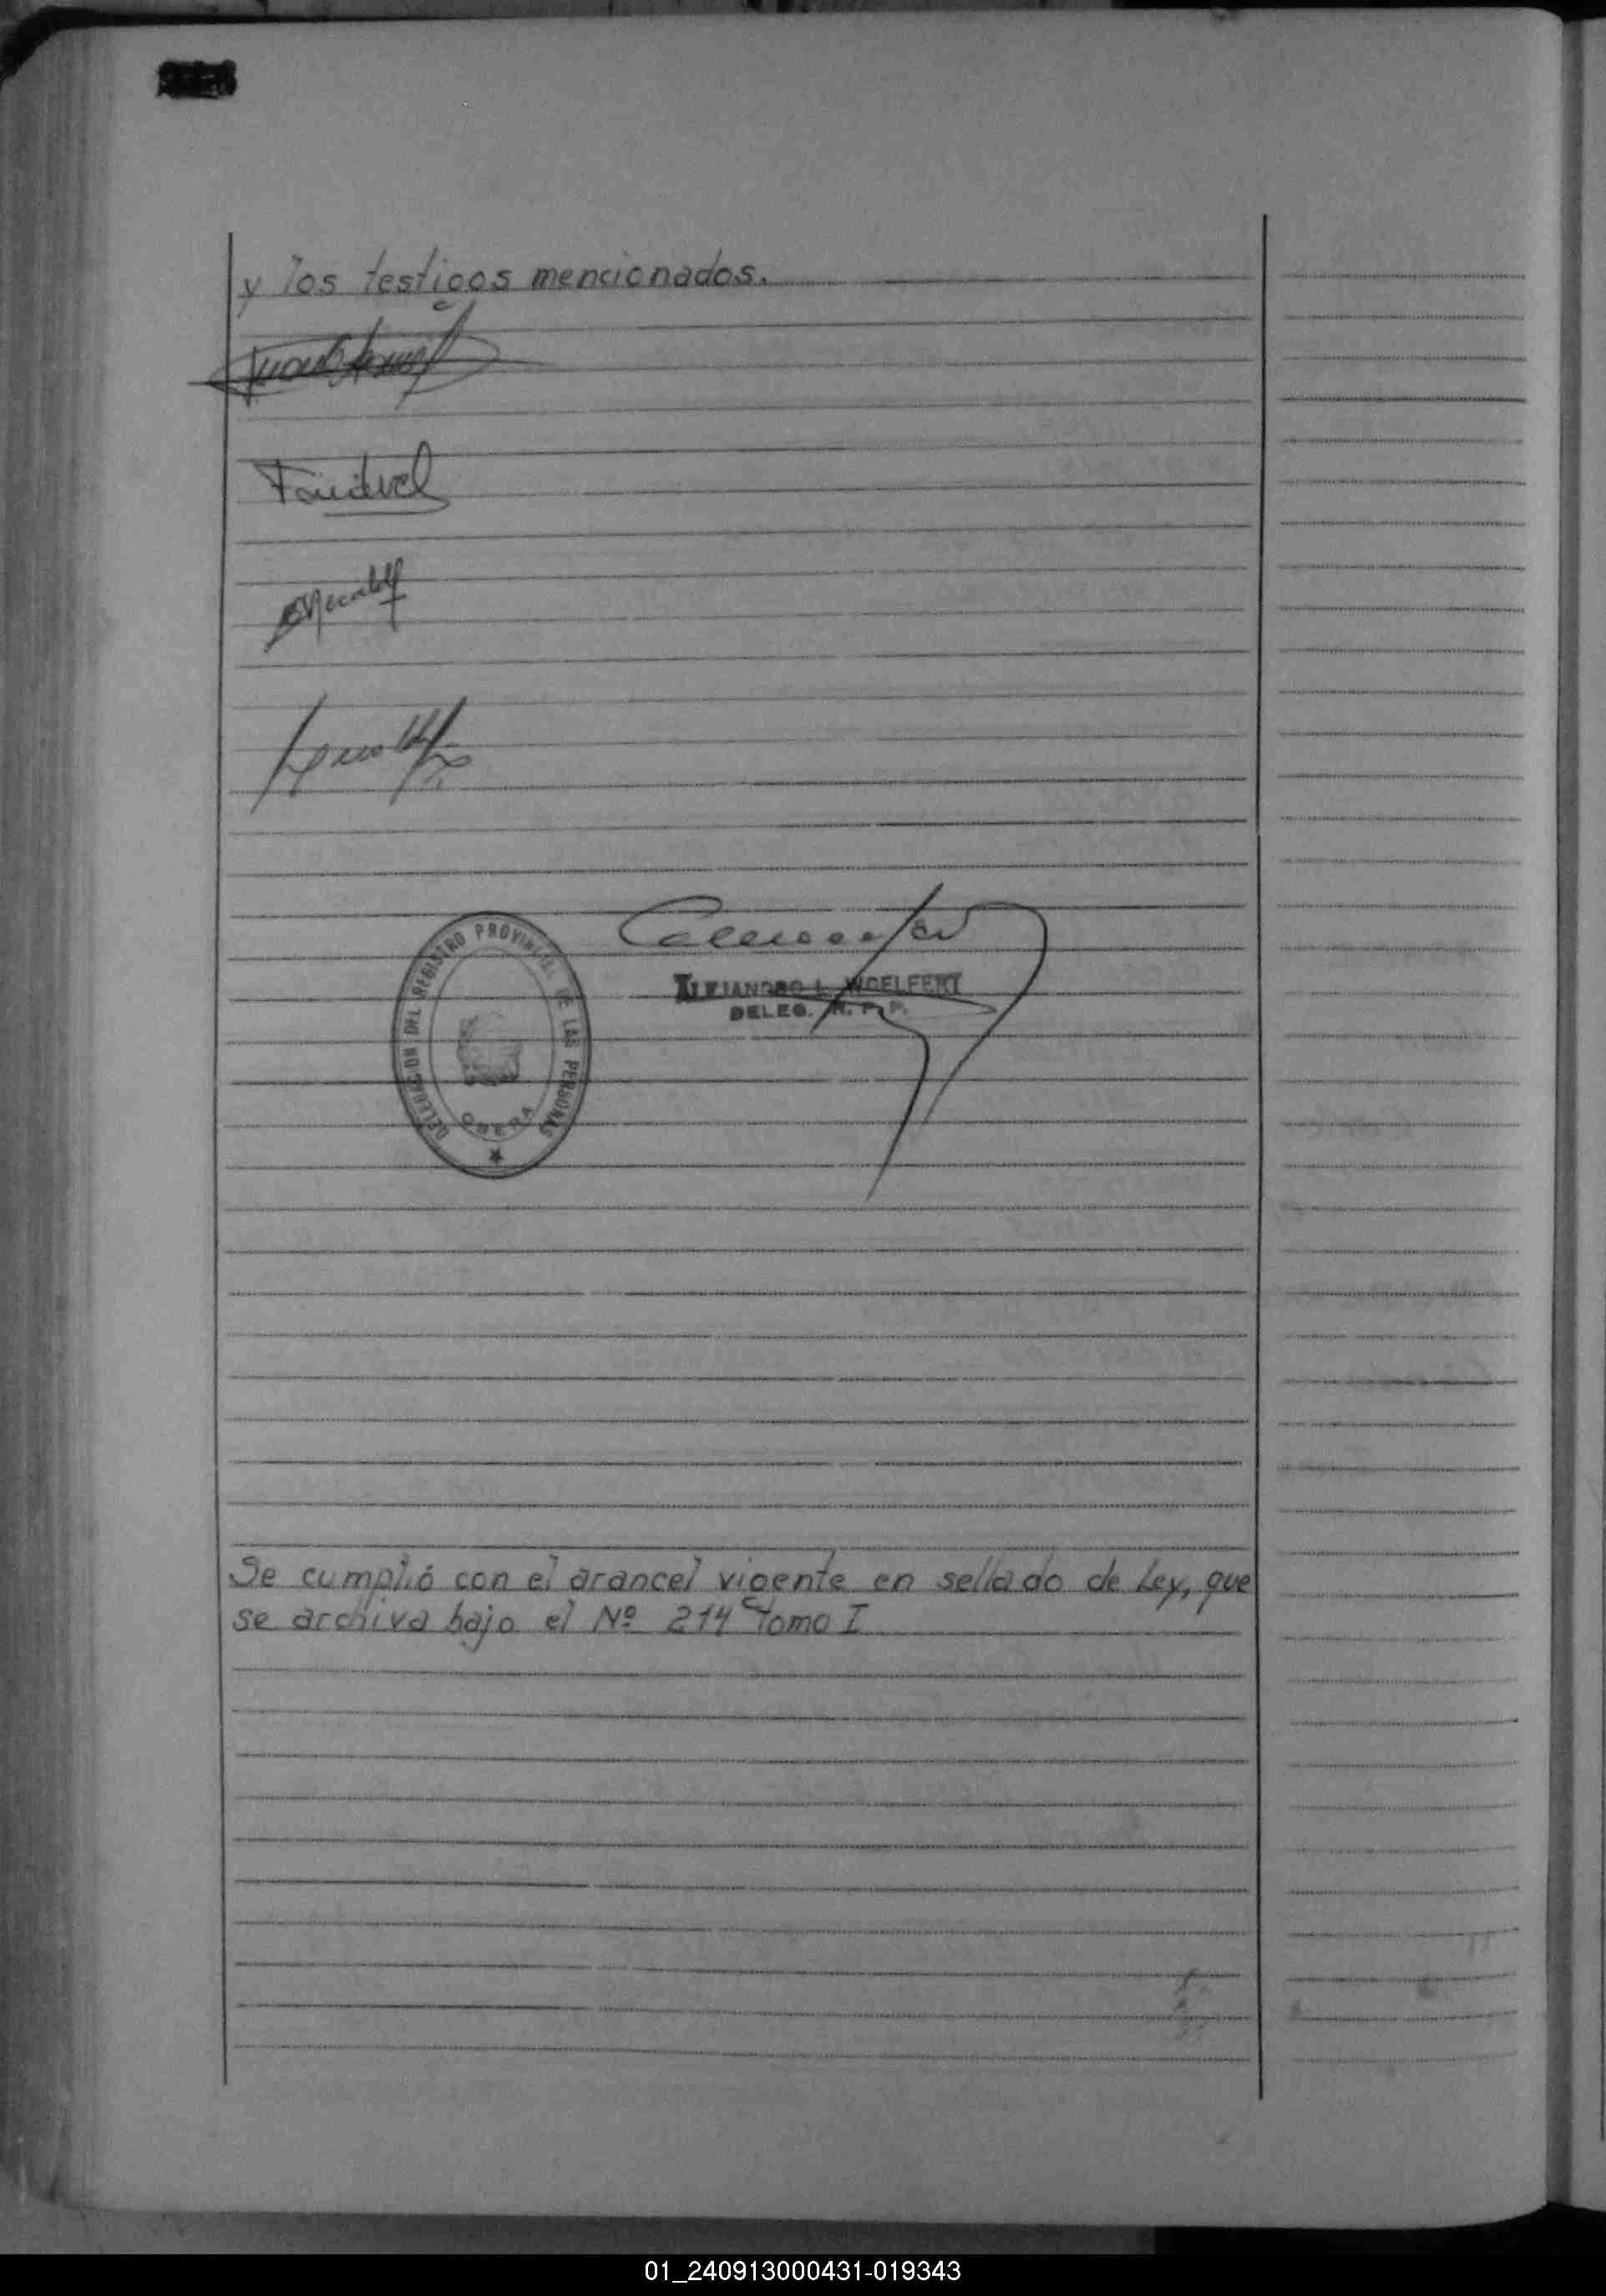 y los testigos mencionados.
DELEGACION DEL REGISTRO PROVINCIAL DE LAS PERSONAS
OBERA
ALEJANDRO L. WOELFERT
DELEG. R. P. P.
Se cumplió con el arancel vigente en sellado de Ley, que
se archiva bajo el Nº 214 Tomo I
01_240913000431-019343